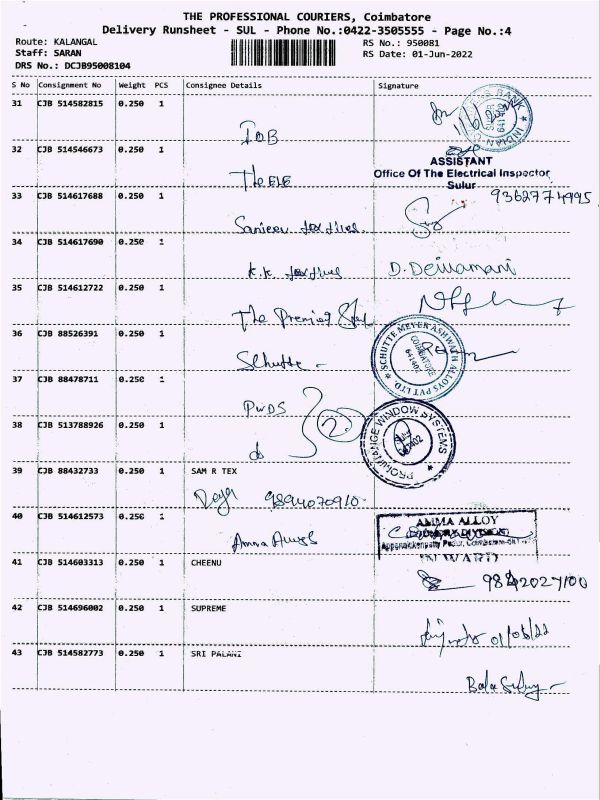 THE PROFESSIONAL COURIERS, Coimbatore
Delivery Runsheet - SUL - Phone No.:0422-3505555 - Page No.:4
Route: KALANGAL
RS No.: 950081
Staff: SARAN
RS Date: 01-Jun-2022
DRS No.: DCJB95008104
S No Consignment No Weight PCS Consignee Details Signature
31 CJB 514582815 0.250 1
IOB
32 CJB 514546673 0.250 1
The ELE
ASSISTANT
Office Of The Electrical Inspector
Sulur
33 CJB 514617688 0.250 1
9362774995
Sanjeev textiles
34 CJB 514617690 0.250 1
K.K. textiles D. Deivamani
35 CJB 514612722 0.250 1
The Premier
36 CJB 88526391 0.250 1
Schutte
SCHUTTE MEYER ASHWATH ALLOYS PVT LTD.
COIMBATORE
641402
37 CJB 88478711 0.250 1
PWDS
2
38 CJB 513788926 0.250 1
do
PROMINANCE WINDOW SYSTEMS
641402
39 CJB 88432733 0.250 1 SAM R TEX
9894070910
40 CJB 514612573 0.250 1
Amma Alloys
AMMA ALLOY
INWARD
41 CJB 514603313 0.250 1 CHEENU
9842027100
42 CJB 514696002 0.250 1 SUPREME
01/06/22
43 CJB 514582773 0.250 1 SRI PALANI